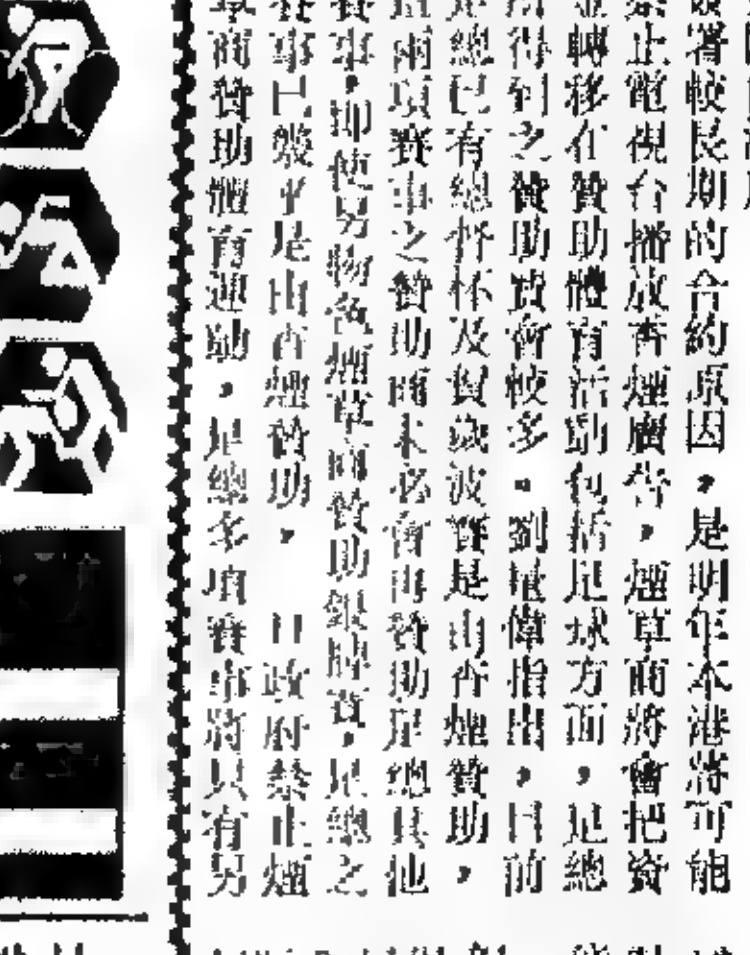 簽署較長期的合約原因，是明年本港將可能
禁止電視台播放香煙廣告，煙草商將會把資
金轉移在贊助體育活動包括足球方面，足總
所得到之贊助費會較多。劉權偉指出，目前
足總已有總督杯及賀歲波賽是由香煙贊助，
這兩項賽事之贊助商未必會再贊助足總其他
賽事，即使另物色煙草商贊助銀牌賽，足總之
賽事已幾乎是由香煙贊助，一日政府禁止煙
草商贊助體育運動，足總多項賽事將只有另